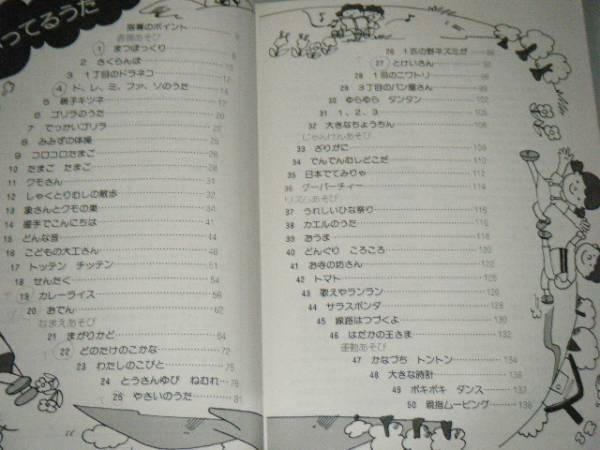 ってるうた
指導のポイント
表現あそび
1 まつぼっくり
2 さくらんぼ
3 1丁目のドラネコ
4 ド、レ、ミ、ファ、ソのうた
5 親子キツネ
6 ゴリラのうた
7 でっかいゴリラ
8 みみずの体操
9 コロコロたまご
10 たまご たまご
11 クモさん 31
12 しゃくとりむしの散歩
13 象さんとクモの巣
14 握手でこんにちは 41
15 どんな音 44
16 こどもの大工さん
17 トッテン チッテン 51
18 せんたく
19 カレーライス 56
20 おでん
なまえあそび
21 まがりかど 64
22 どのたけのこかな 72
23 わたしのこびと 76
24 とうさんゆび ねむれ
25 やさいのうた 81
26 1匹の野ネズミが
27 とけいさん
28 1目のニワトリ
29 3丁目のパン屋さん
30 ゆらゆら タンタン
31 1、2、3
32 大きなちょうちん 106
じゃんけんあそび
33 ざりがに
34 でんでんむしどこだ 110
35 日本でてみりゃ 112
36 グーパーチィー 114
リズムあそび
37 うれしいひな祭り 116
38 カエルのうた 118
39 おうま
40 どんぐり ころころ
41 お寺の坊さん
42 トマト 126
43 歌えやランラン
44 サラスポンダ
45 線路はつづくよ 130
46 はだかの王さま 132
運動あそび
47 かなづち トントン 134
48 大きな時計 136
49 ポキポキ ダンス
50 親指ムービング